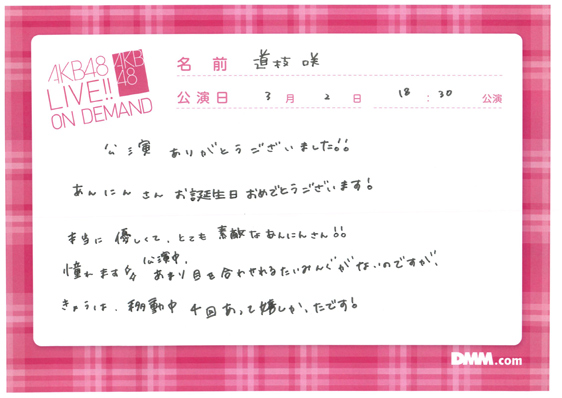 AKB48
LIVE!!
ON DEMAND
AKB
48
名前 道枝咲
公演日 3月2日 18:30公演
公演 ありがとうございました!!
あんにんさん お誕生日おめでとうございます!
本当に 優しくて、とても 素敵なあんにんさん!!
憧れます 公演中、あまり目を合わせれるたいみんぐがないのですが、
きょうは、移動中 4回あって嬉しかったです!
DMM.com